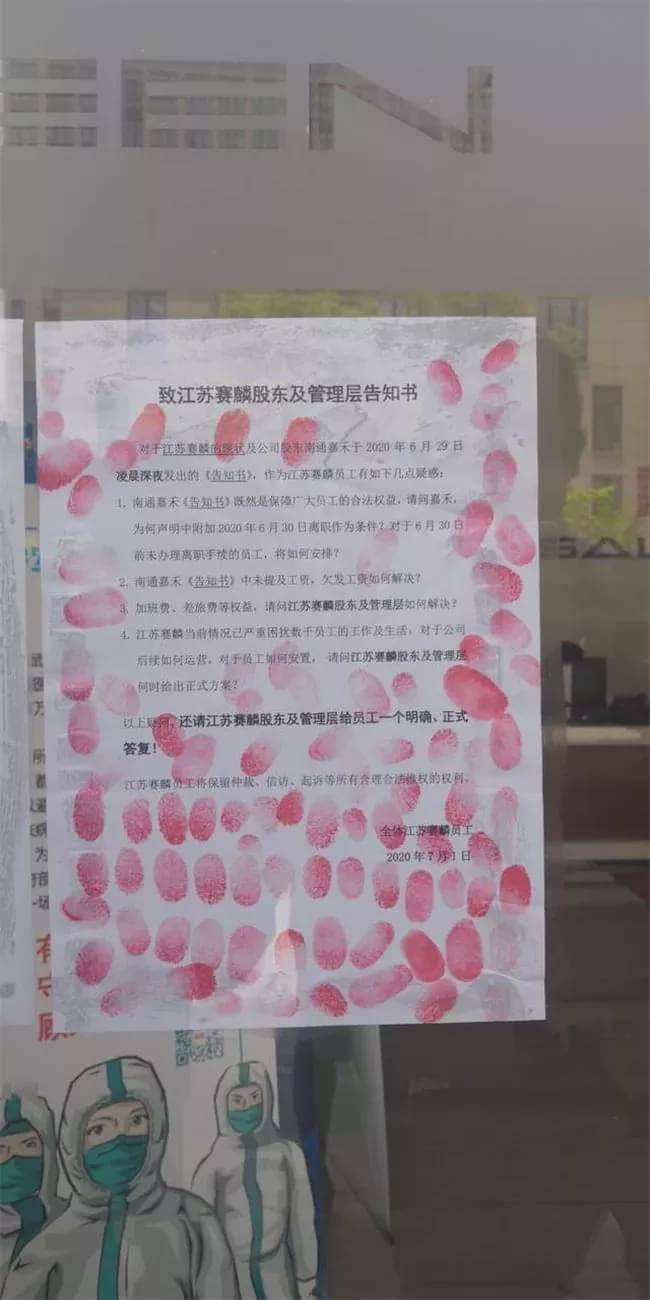 EEN
致江苏赛麟股东及管理层告知书
对于江苏赛麟的现状及公司股东南通嘉禾于 2020 年 6 月 29 日
凌晨深夜发出的《告知书》，作为江苏赛麟员工有如下几点疑惑：
1. 南通嘉禾《告知书》既然是保障广大员工的合法权益，请问嘉禾，
为何声明中附加 2020 年 6 月 30 日离职作为条件？对于 6 月 30 日
前未办理离职手续的员工，将如何安排？
2. 南通嘉禾《告知书》中未提及工资，欠发工资如何解决？
3. 加班费、差旅费等权益，请问江苏赛麟股东及管理层如何解决？
4. 江苏赛麟当前情况已严重困扰数千员工的工作及生活，对于公司
后续如何运营，对于员工如何安置， 请问江苏赛麟股东及管理层
何时给出正式方案？
以上疑问，还请江苏赛麟股东及管理层给员工一个明确、正式
答复！
江苏赛麟员工将保留仲裁、信访、起诉等所有合理合法维权的权利。
全体江苏赛麟员工
2020 年 7 月 1 日